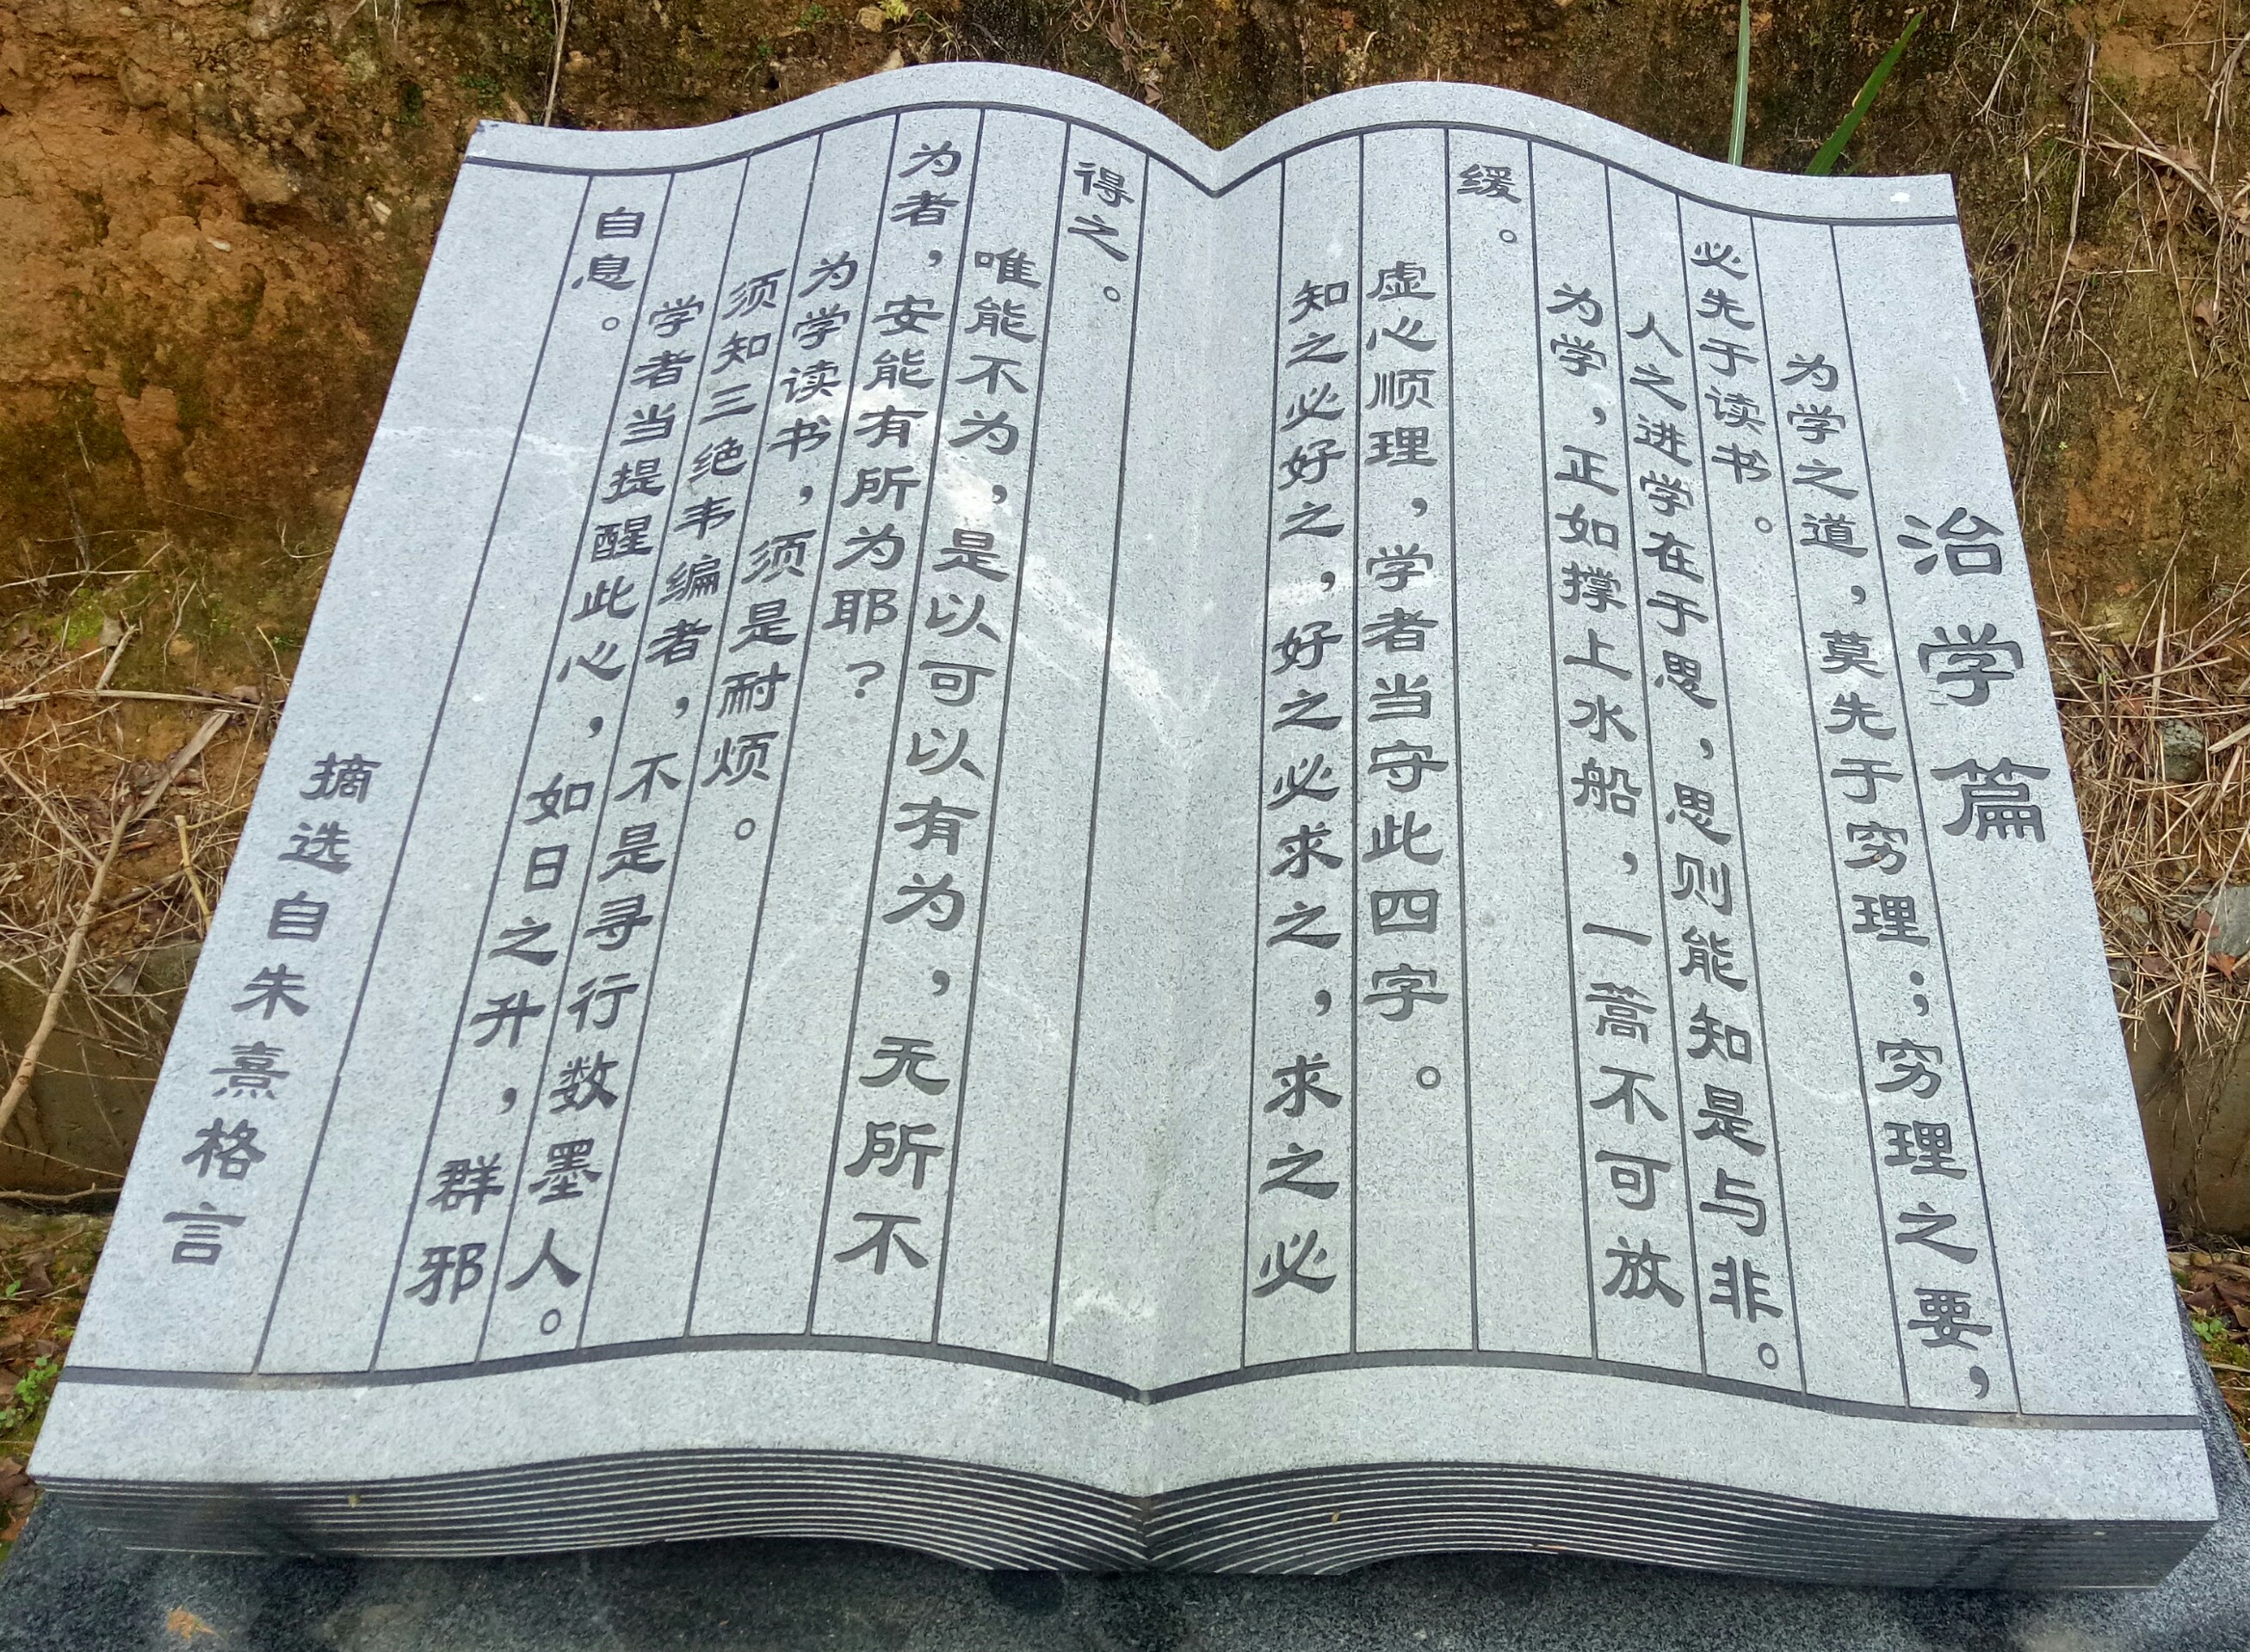 治学篇
为学之道，莫先于穷理；穷理之要，
必先于读书。
人之进学在于思，思则能知是与非。
为学，正如撑上水船，一蒿不可放
缓。
虚心顺理，学者当守此四字。
知之必好之，好之必求之，求之必
得之。
唯能不为，是以可以有为，无所不
为者，安能有所为耶？
为学读书，须是耐烦。
须知三绝韦编者，不是寻行数墨人。
学者当提醒此心，如日之升，群邪
自息。
摘选自朱熹格言